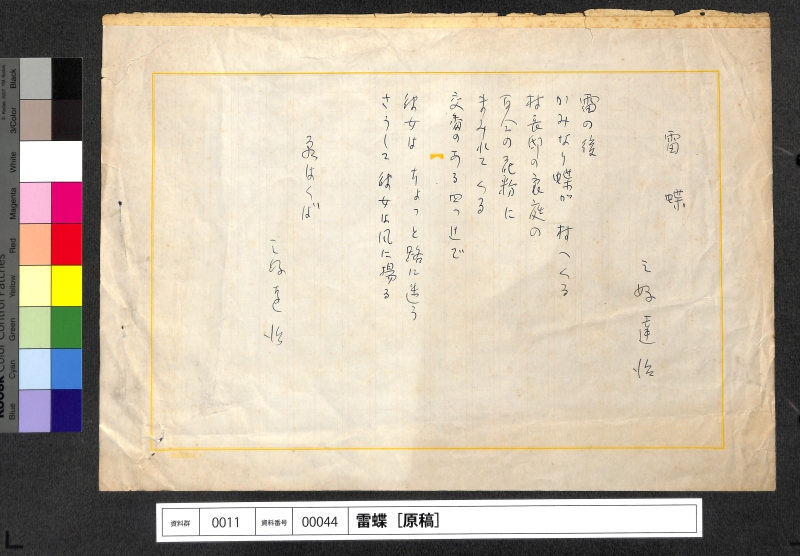 雷蝶
三好達治
雷の後
かみなり蝶が 村へくる
村長邸の裏庭の
百合の花粉に
まみれてくる
交番のある四つ辻で
彼女は ちょっと路に迷う
さうして彼女は風に揚る
はくば
三好達治
資料群 0011 資料番号 00044 雷蝶［原稿］
Black
3/Color
White
Magenta
Red
Yellow
Green
Cyan
Blue